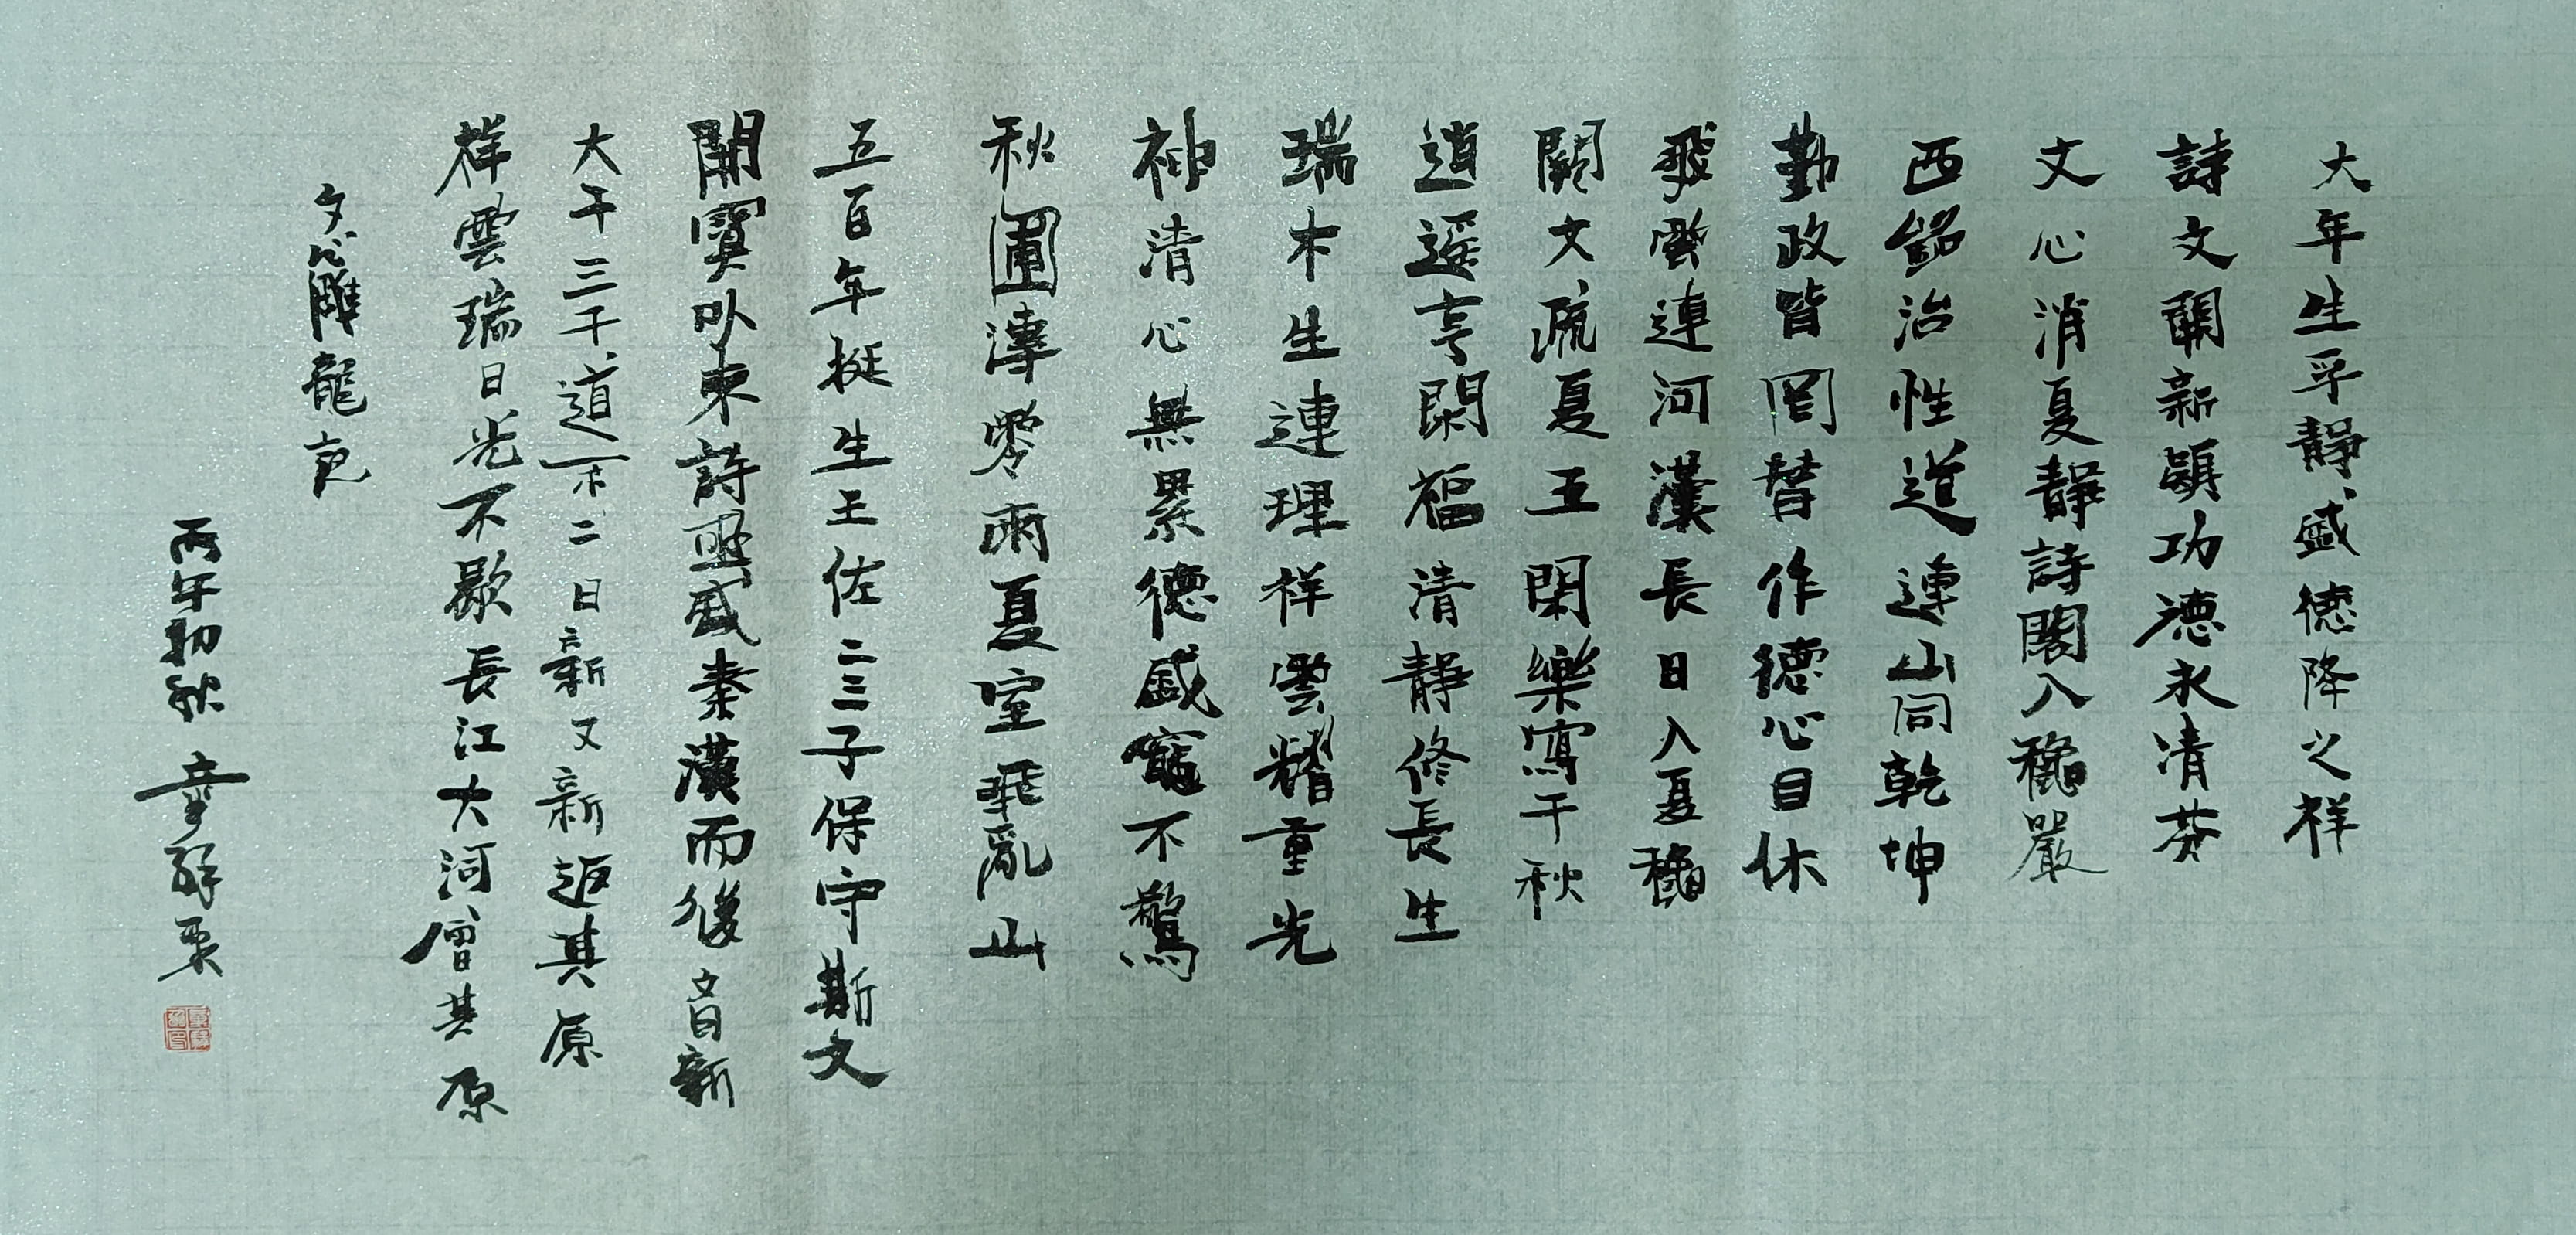 大年生乎靜盛德降之祥
詩文關新穎功德永清芬
文心消夏靜詩閣入穐嚴
西銘治性道連山同乾坤
勤政皆罔替作德心日休
飛雲連河漢長日入夏穐
闕文疏夏五閑樂寫千秋
逍遥亨閑福清靜修長生
瑞木生連理祥雲耀重光
神清心無累德盛寵不驚
秋圃漙零雨夏室飛亂山
五百年挺生王佐二三子保守斯文
開寶以來詩盛秦漢而後文日新
大千三千道不二日新又新返其原
祥雲瑞日光不歇長江大河溯其原
文心雕龍句
丙午初秋